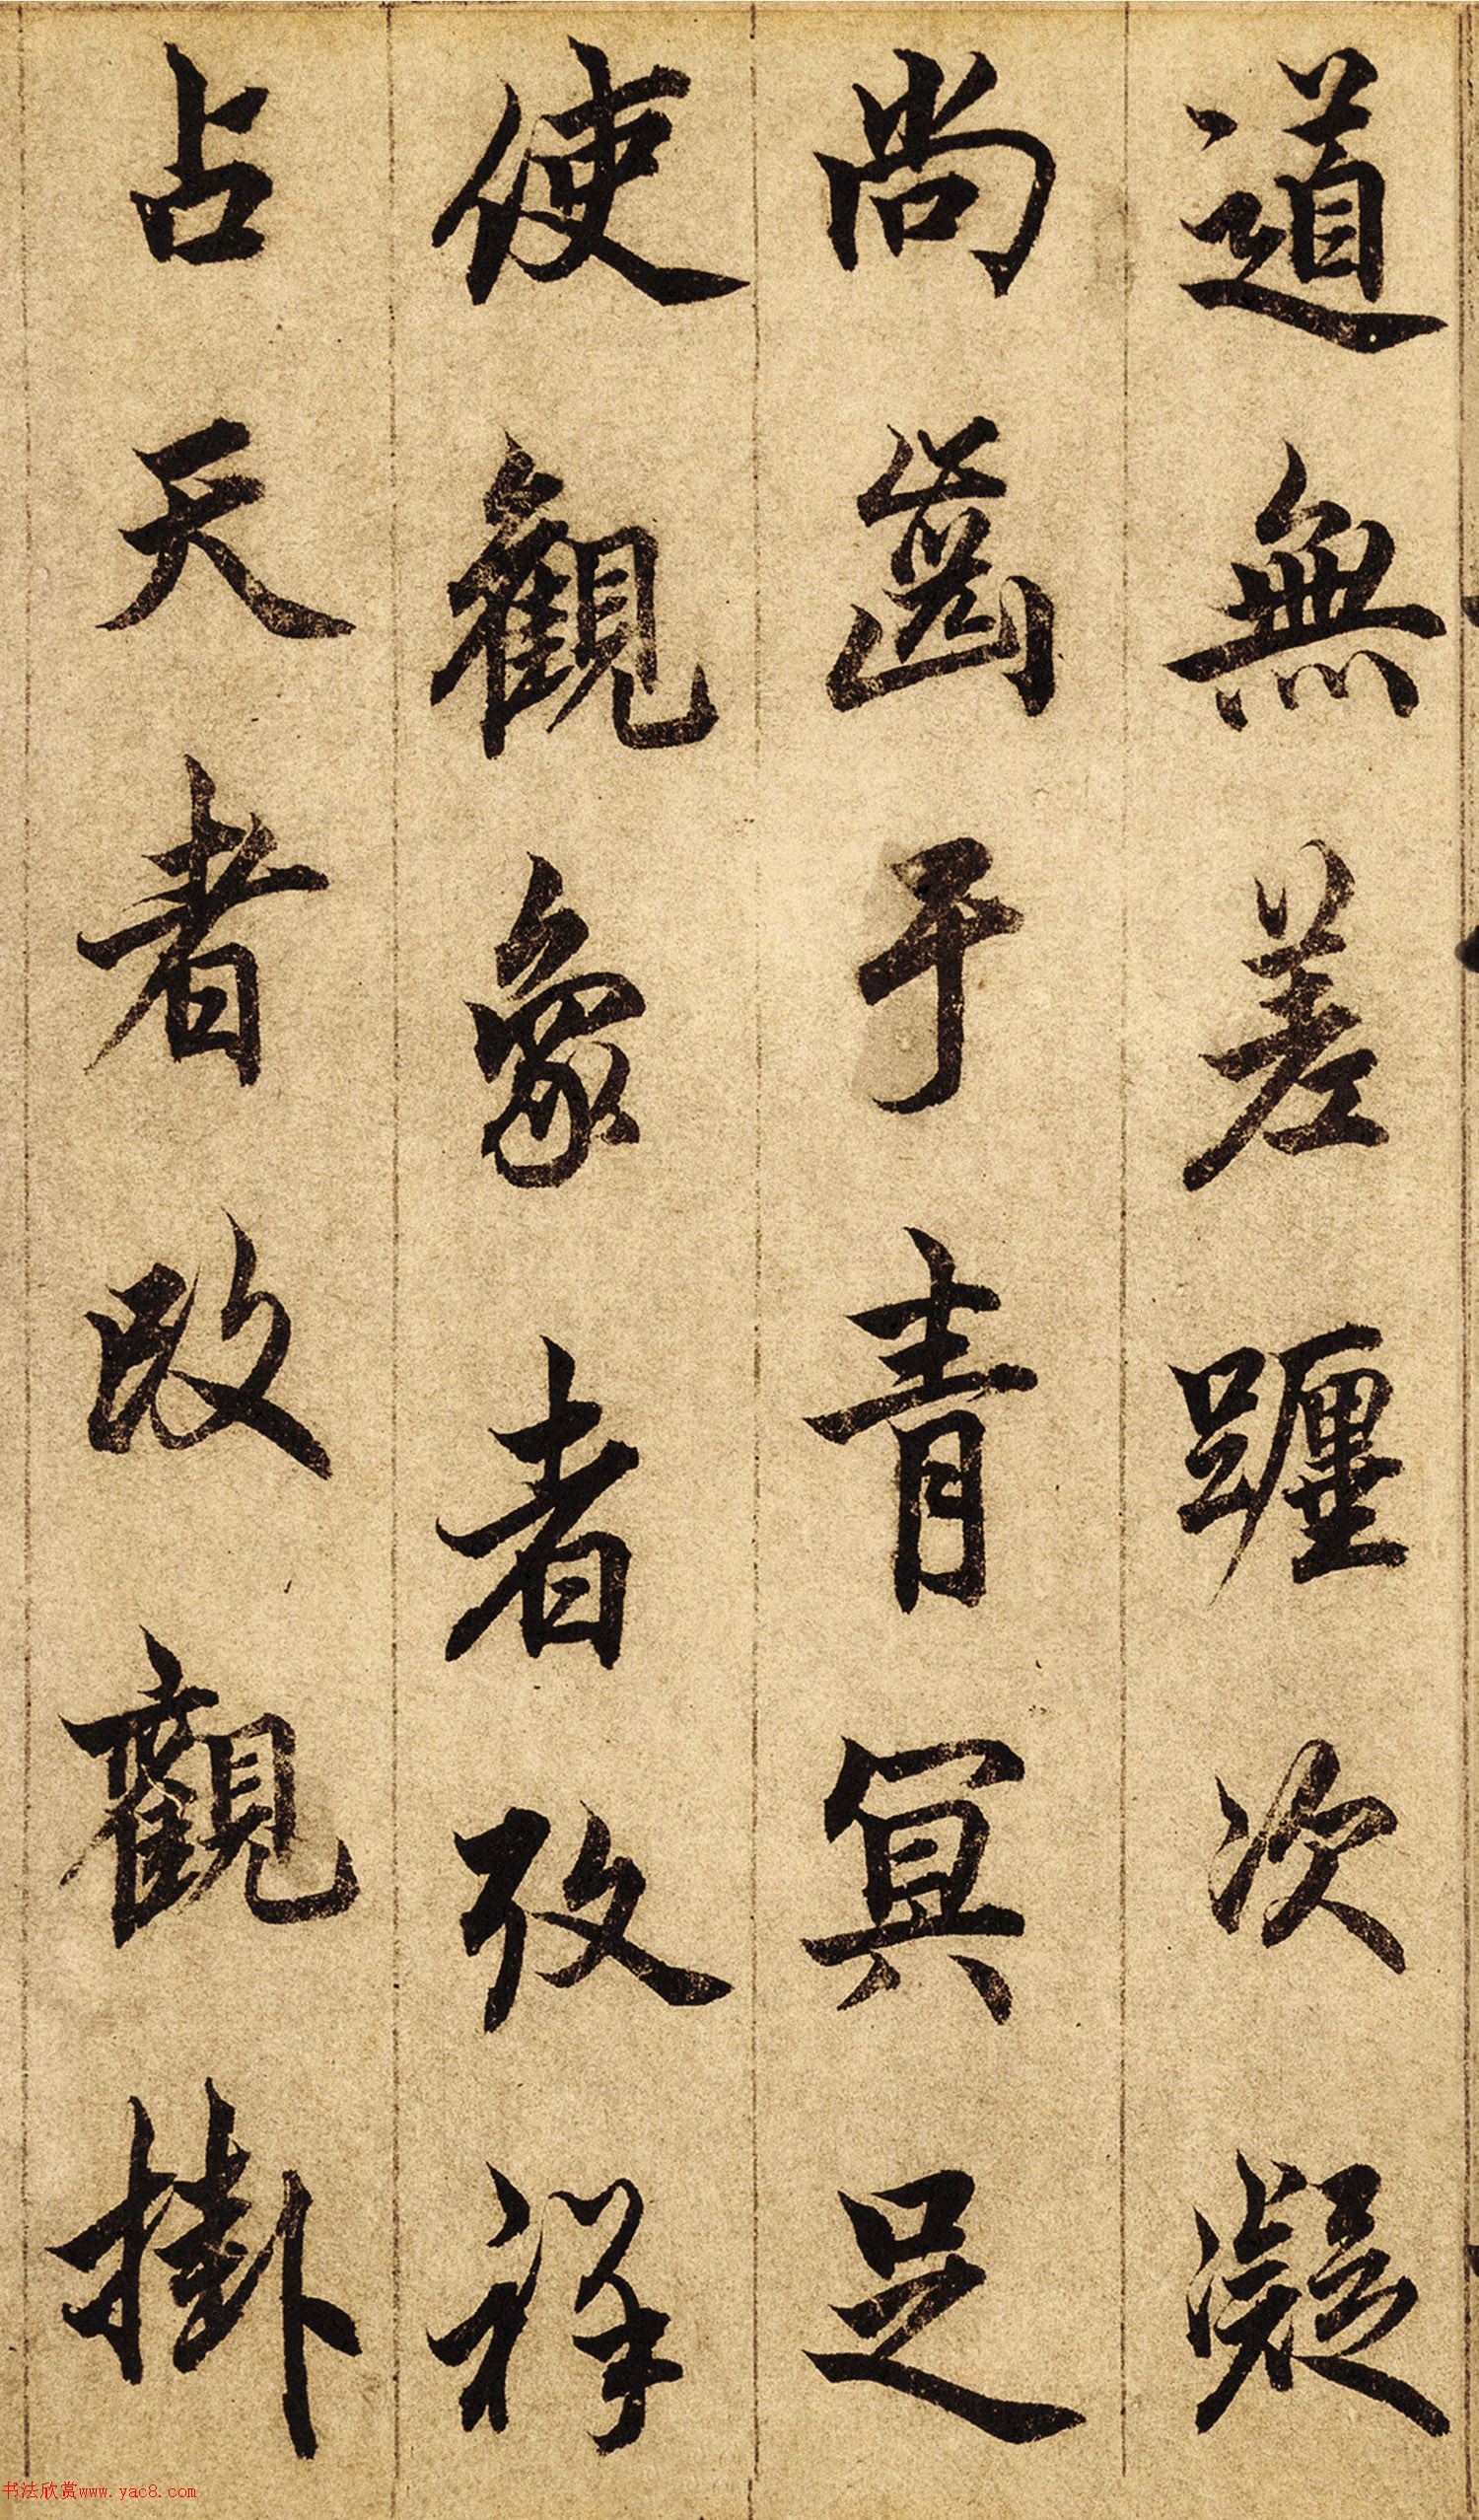 道無差躔次凝
尚齒于青冥足
使觀象者攷祥
占天者改觀掛
书法欣赏www.yac8.com